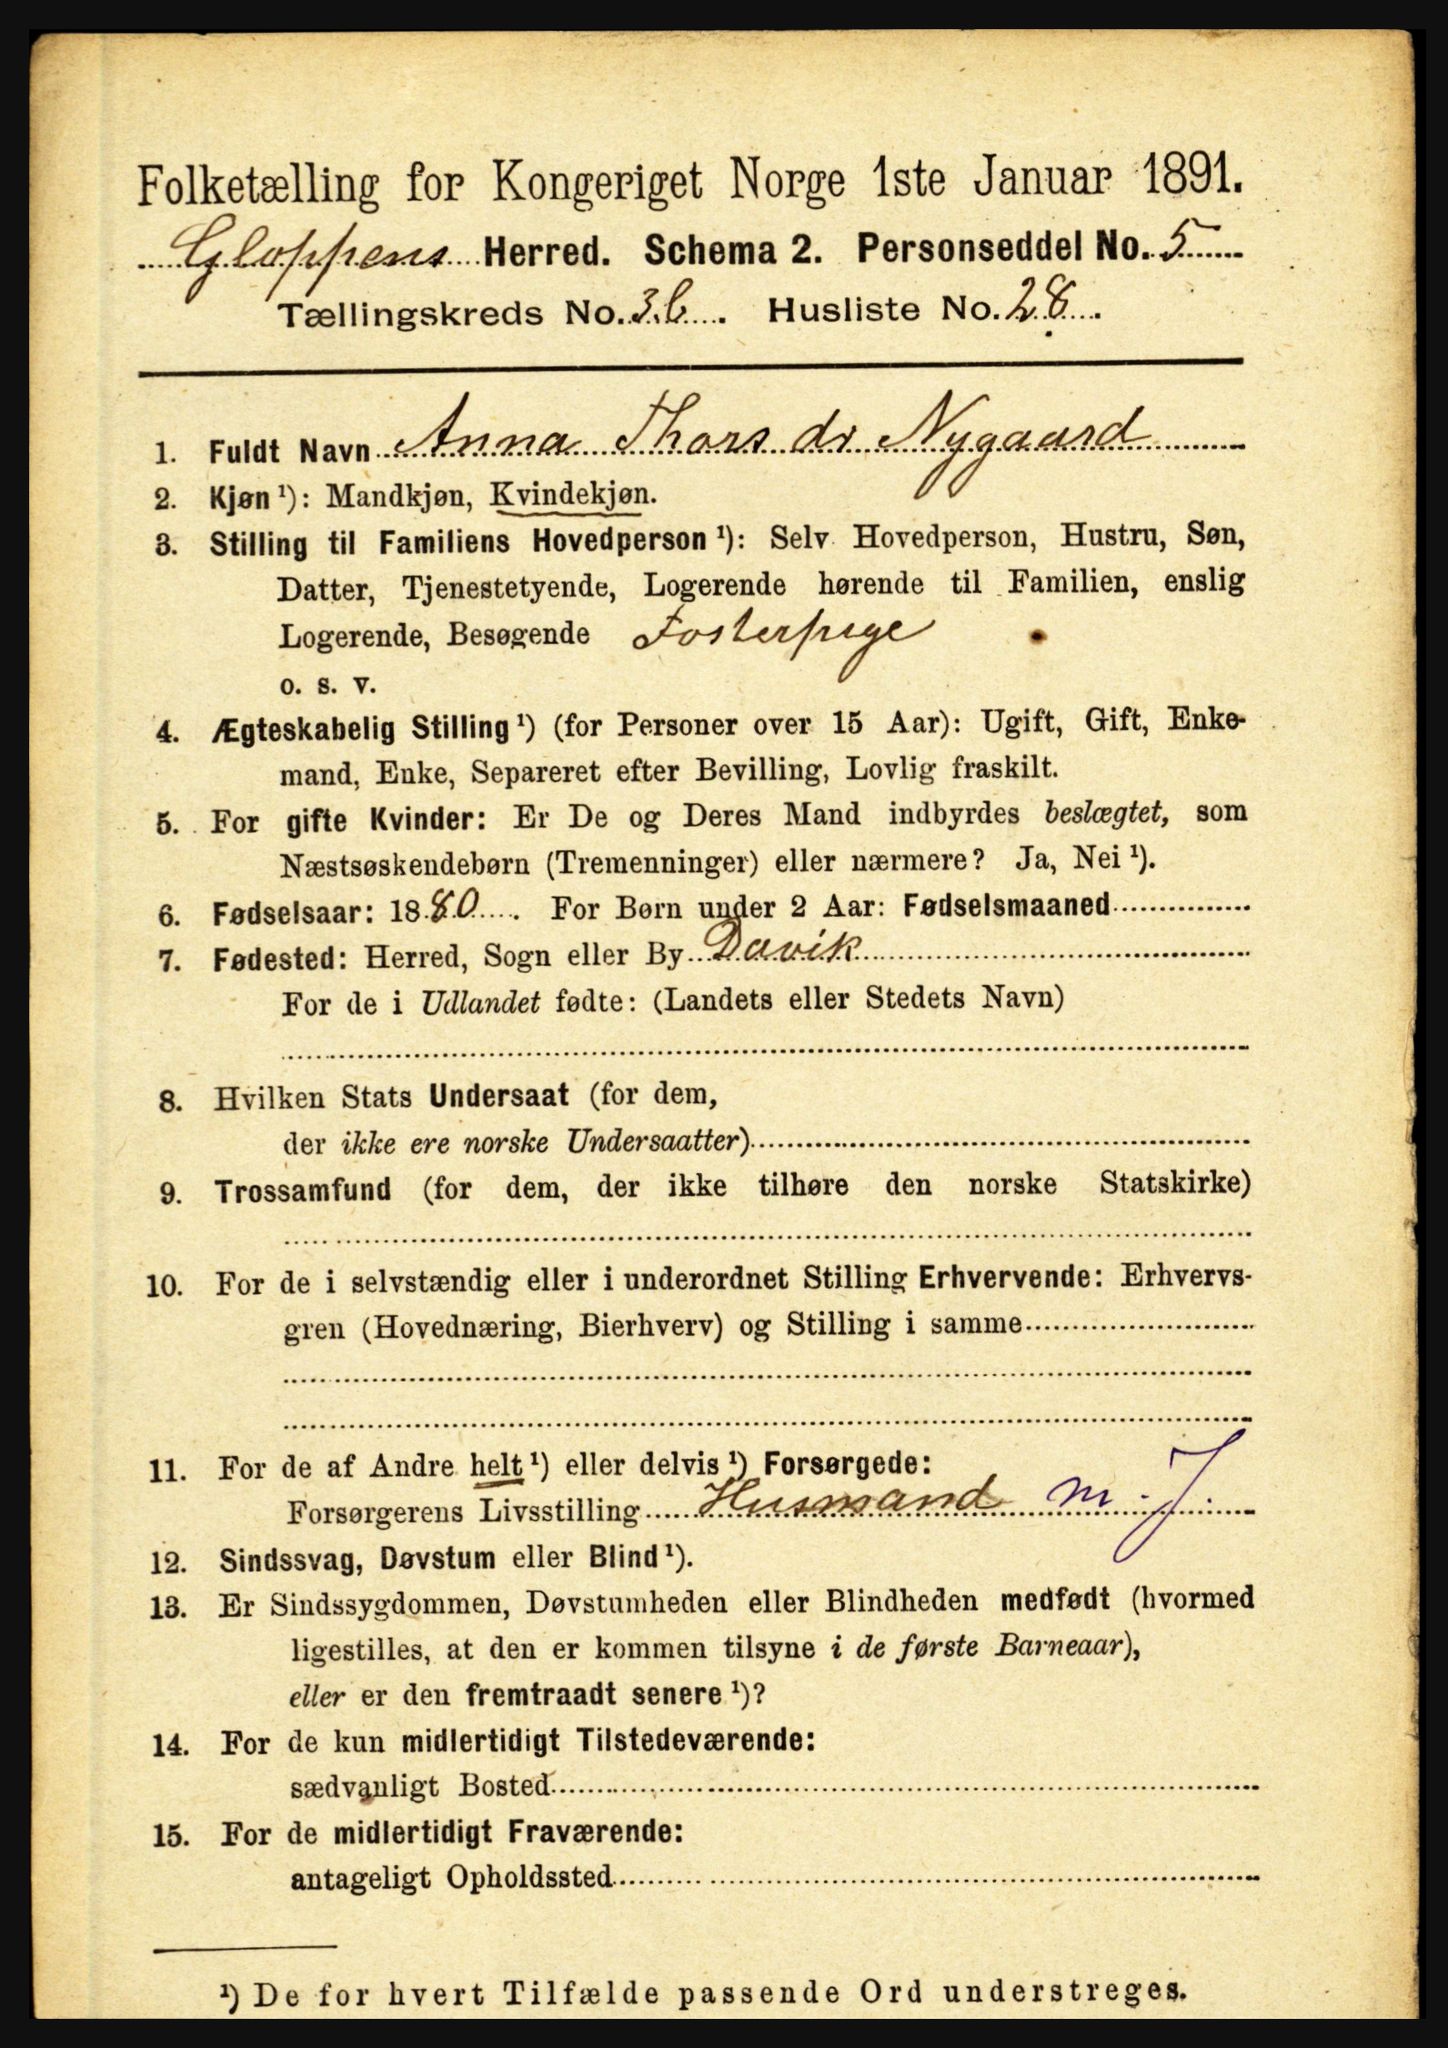 Folketælling for Kongeriget Norge 1ste Januar 1891.
Gloppens Herred. Schema 2. Personseddel No. 5
Tællingskreds No. 3 b. Husliste No. 28.
1. Fuldt Navn Anna Thorsdr Nygaard
2. Kjøn ¹): Mandkjøn, Kvindekjøn.
3. Stilling til Familiens Hovedperson ¹): Selv Hovedperson, Hustru, Søn,
Datter, Tjenestetyende, Logerende hørende til Familien, enslig
Logerende, Besøgende Fosterpige
o. s. v.
4. Ægteskabelig Stilling ¹) (for Personer over 15 Aar): Ugift, Gift, Enke-
mand, Enke, Separeret efter Bevilling, Lovlig fraskilt.
5. For gifte Kvinder: Er De og Deres Mand indbyrdes beslægtet, som
Næstsøskendebørn (Tremenninger) eller nærmere? Ja, Nei ¹).
6. Fødselsaar: 1880. For Børn under 2 Aar: Fødselsmaaned
7. Fødested: Herred, Sogn eller By Davik
For de i Udlandet fødte: (Landets eller Stedets Navn)
8. Hvilken Stats Undersaat (for dem,
der ikke ere norske Undersaatter)
9. Trossamfund (for dem, der ikke tilhøre den norske Statskirke)
10. For de i selvstændig eller i underordnet Stilling Erhvervende: Erhvervs-
gren (Hovednæring, Bierhverv) og Stilling i samme
11. For de af Andre helt ¹) eller delvis ¹) Forsørgede:
Forsørgerens Livsstilling Husmand m. J.
12. Sindssvag, Døvstum eller Blind ¹).
13. Er Sindssygdommen, Døvstumheden eller Blindheden medfødt (hvormed
ligestilles, at den er kommen tilsyne i de første Barneaar),
eller er den fremtraadt senere ¹)?
14. For de kun midlertidigt Tilstedeværende:
sædvanligt Bosted
15. For de midlertidigt Fraværende:
antageligt Opholdssted
¹) De for hvert Tilfælde passende Ord understreges.